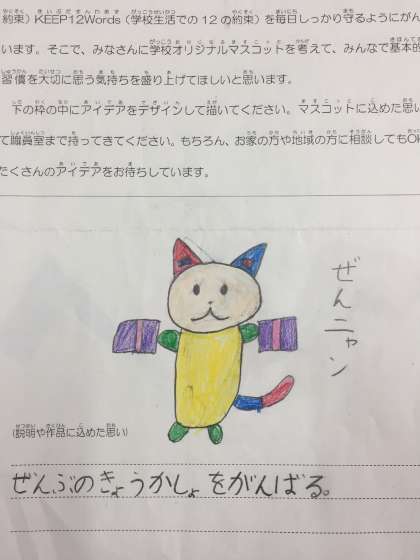 約束)KEEP12Words(学校生活での12の約束)を毎日しっかり守るようにがん
います。そこで、みなさんに学校オリジナルマスコットを考えて、みんなで基本的
習慣を大切に思う気持ちを盛り上げてほしいと思います。
下の枠の中にアイデアをデザインして描いてください。マスコットに込めた思い
て職員室まで持ってきてください。もちろん、お家の方や地域の方に相談してもOK
たくさんのアイデアをお待ちしています。
ぜんニャン
(説明や作品に込めた思い)
ぜんぶのきょうかしょをがんばる。